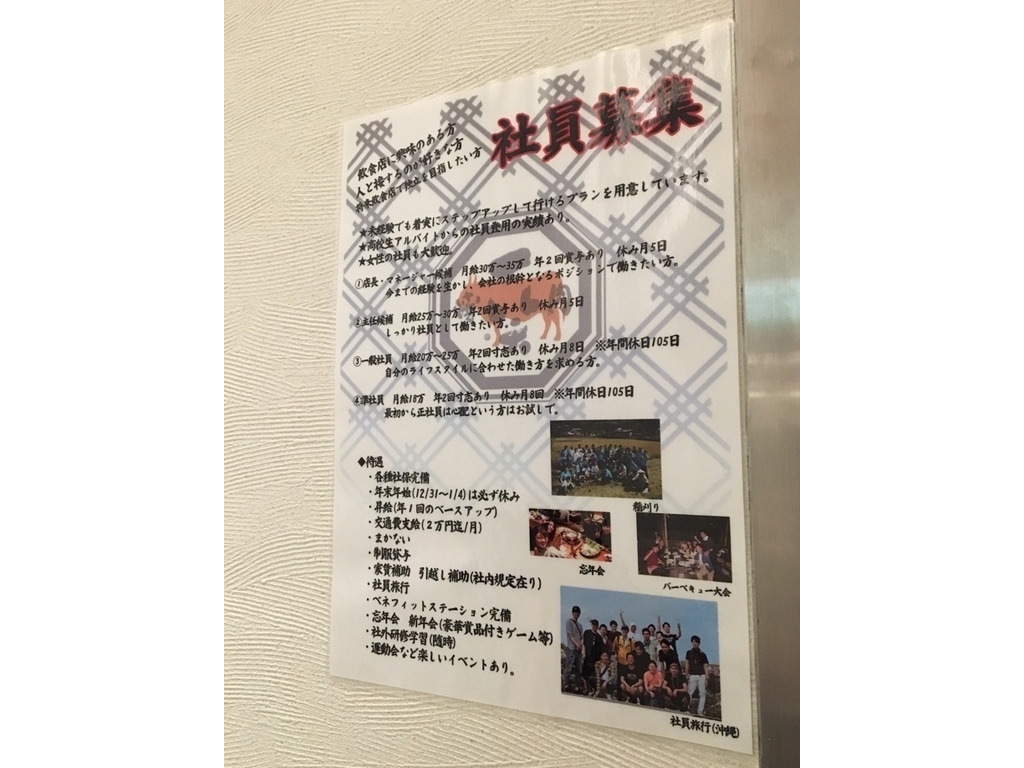 社員募集
飲食店に興味のある方
人と接するのが好きな方
将来飲食店で独立を目指したい方
★未経験でも着実にステップアップして行けるプランを用意しています。
★高校生アルバイトからの社員登用の実績あり。
★女性の社員も大歓迎。
①店長・マネージャー候補 月給30万～35万 年2回賞与あり 休み月5日
今までの経験を生かし、会社の根幹となるポジションで働きたい方。
②主任候補 月給25万～30万 年2回賞与あり 休み月5日
しっかり社員として働きたい方。
③一般社員 月給20万～25万 年2回寸志あり 休み月8日 ※年間休日105日
自分のライフスタイルに合わせた働き方を求める方。
④準社員 月給18万 年2回寸志あり 休み月8回 ※年間休日105日
最初から正社員は心配という方はお試しで。
◆待遇
・各種社保完備
・年末年始(12/31～1/4)は必ず休み
・昇給(年1回のベースアップ)
・交通費支給(2万円迄/月)
・まかない
・制服貸与
・家賃補助 引越し補助(社内規定在り)
・社員旅行
・ベネフィットステーション完備
・忘年会 新年会(豪華賞品付きゲーム等)
・社外研修学習(随時)
・運動会など楽しいイベントあり。
稲刈り
忘年会
バーベキュー大会
社員旅行(沖縄)